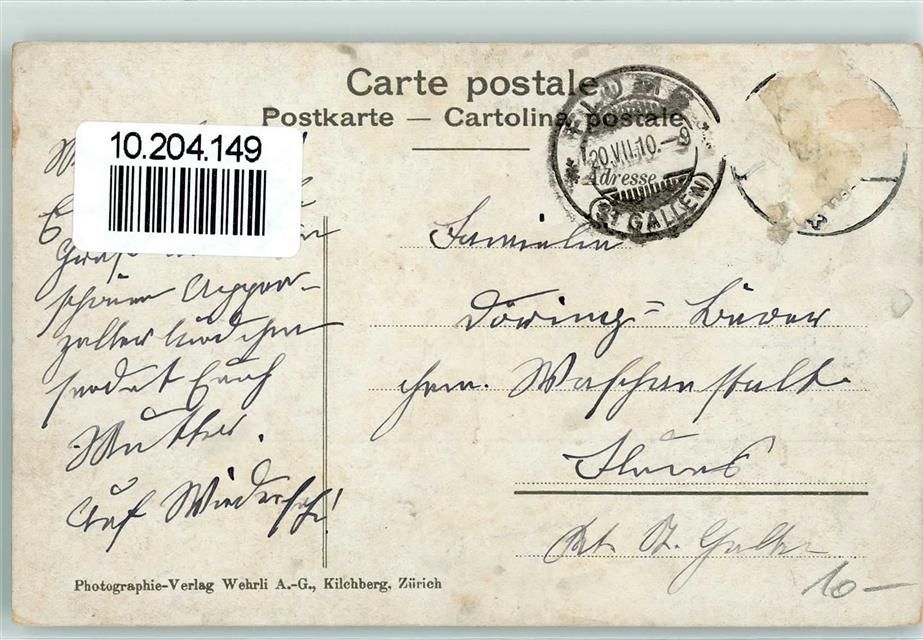 Carte postale
Postkarte — Cartolina postale
10.204.149
FLUMS
20.VII.10.–9
Adresse
(ST GALLEN)
schönen Appen-
zeller Ländchen
sendet Euch
Mutter.
Auf Wiedersehn!
Familie
Döring=
chem. Waschanstalt
Flums
Kt. St. Gallen
10–
Photographie-Verlag Wehrli A.-G., Kilchberg, Zürich